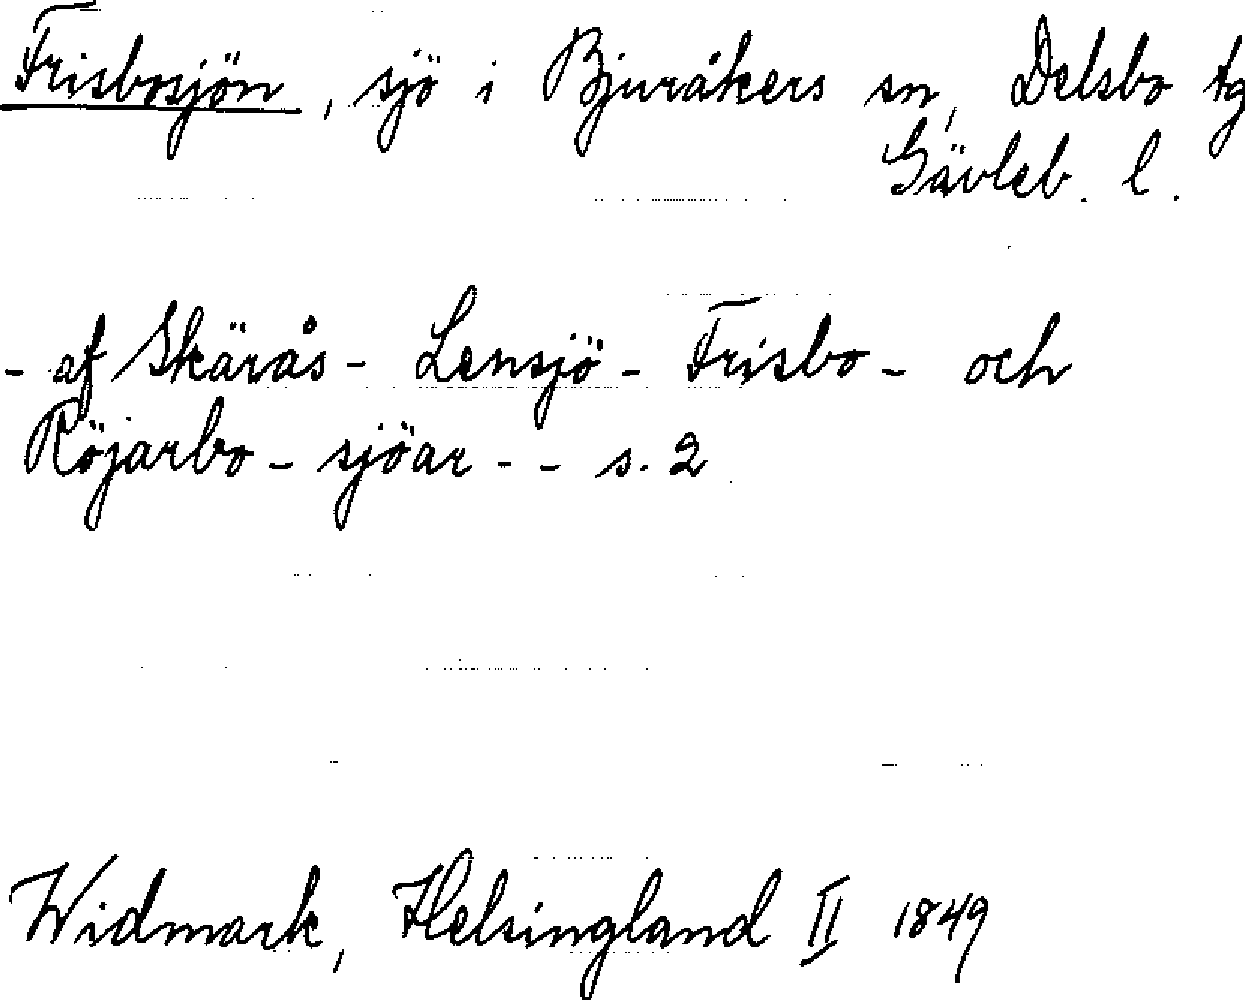 Frisbosjön, sjö i Bjuråkers sn, Delsbo tg
Gävleb. l.
- af Skärås - Lensjö - Frisbo - och
Röjarbo - sjöar - - s. 2
Widmark, Helsingland II 1849